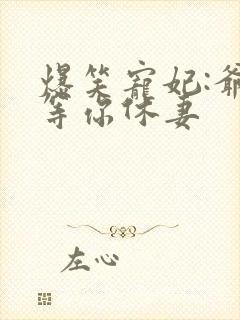 爆笑宠妃:爷
等你休妻
左心